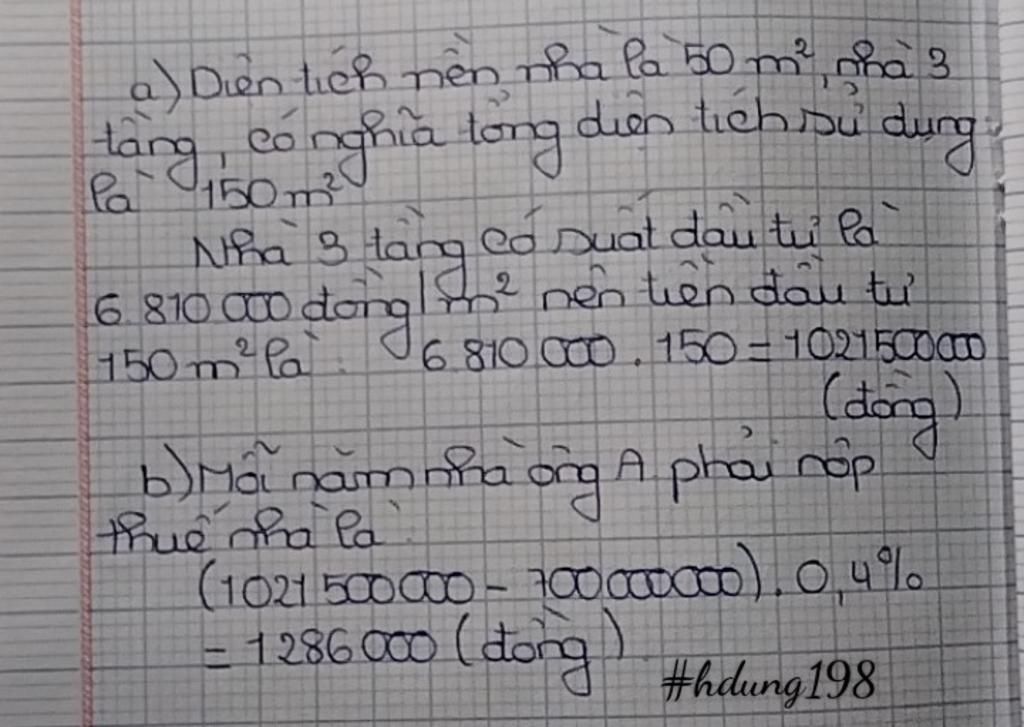 a) Diện tích nền nhà là 50 m², nhà 3
tầng, có nghĩa tổng diện tích sử dụng
là 150 m²
Nhà 3 tầng có suất đầu tư là
6 810 000 đồng/m² nên tiền đầu tư
150 m² là: 6 810 000 . 150 = 1021500000
(đồng)
b) Mỗi năm nhà ông A phải nộp
thuế nhà là:
(1021 500 000 - 700 000 000) . 0,4%
= 1 286 000 (đồng)
#hdung198